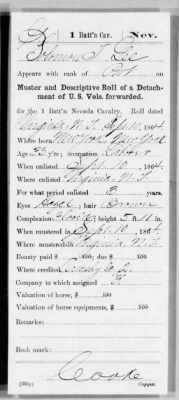 1 Batt'n Cav. Nev.
Solomon T. Lee
Appears with rank of Pvt on
Muster and Descriptive Roll of a Detach-
ment of U. S. Vols. forwarded,
for the 1 Batt'n Nevada Cavalry. Roll dated
Virginia N. T. Sept 10, 1864.
Where born New York, New York
Age 23 y'rs; occupation Laborer
When enlisted Sept. 10, 1864.
Where enlisted Virginia N. T.
For what period enlisted 3 years.
Eyes Hazel; hair Brown
Complexion Florid; height 5 ft. 11 in.
When mustered in Sept. 10, 1864.
Where mustered in Virginia N. T.
Bounty paid $ 100; due $ 100
Where credited
Company to which assigned
Valuation of horse, $ 100
Valuation of horse equipments, $ 100
Remarks:
Book mark:
Cooke
Copyist.